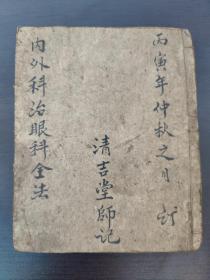 丙寅年仲秋之月訂
清吉堂師記
内外科治眼科全法